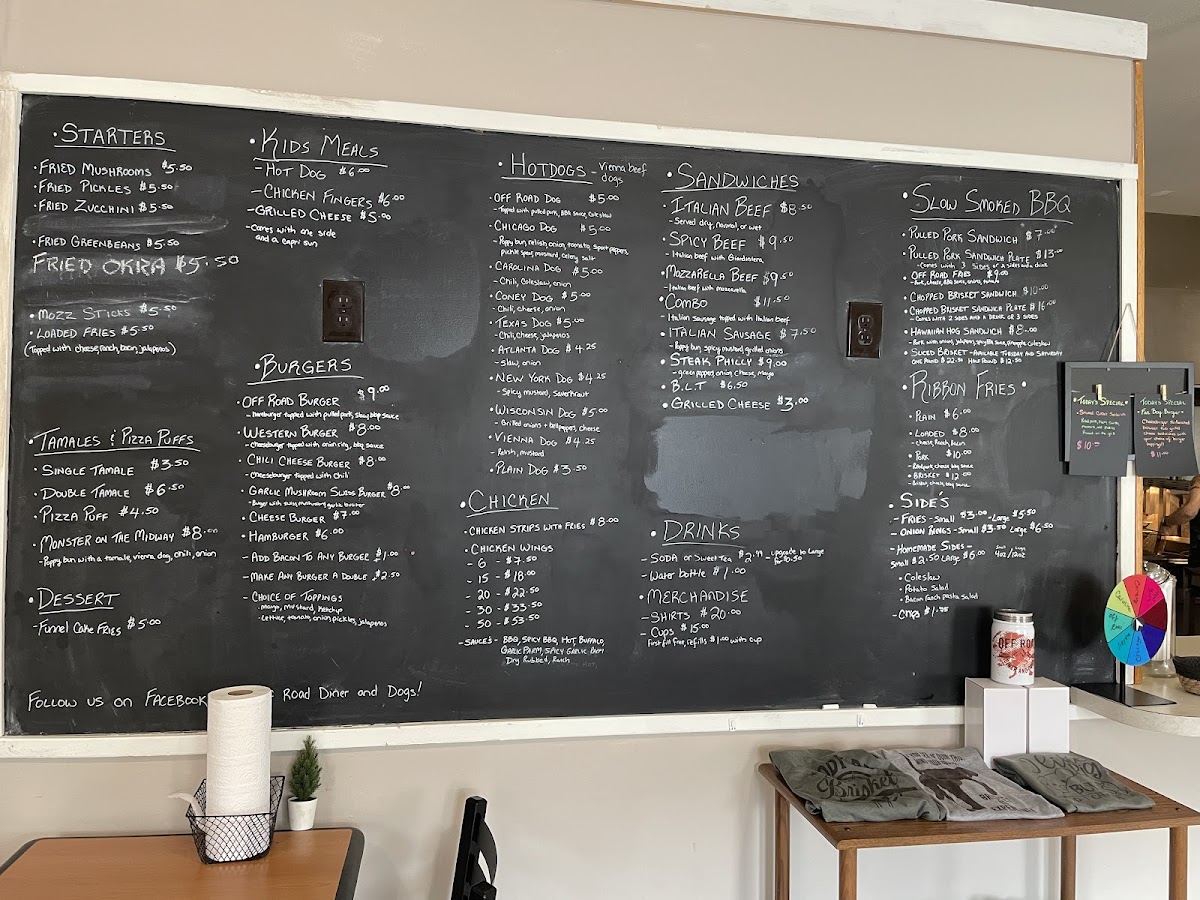 • STARTERS
• FRIED MUSHROOMS $5.50
• FRIED PICKLES $5.50
• FRIED ZUCCHINI $5.50
• FRIED GREENBEANS $5.50
FRIED OKRA $5.50
• MOZZ STICKS $5.50
• LOADED FRIES $5.50
(Topped with cheese, ranch, bacon, jalapeños)
• TAMALES & PIZZA PUFFS
• SINGLE TAMALE $3.50
• DOUBLE TAMALE $6.50
• PIZZA PUFF $4.50
• MONSTER ON THE MIDWAY $8.00
- Poppy bun with a tamale, vienna dog, chili, onion
• DESSERT
- Funnel Cake FRIES $5.00
FOLLOW US ON FACEBOOK ROAD DINER AND DOGS!
• KIDS MEALS
- HOT DOG $6.00
- CHICKEN FINGERS $6.00
- GRILLED CHEESE $5.00
- Comes with one side
and a capri sun
• BURGERS
• OFF ROAD BURGER $9.00
- Hamburger topped with pulled pork, slaw, bbq sauce
• WESTERN BURGER $8.00
- Cheeseburger topped with onion ring, bbq sauce
• CHILI CHEESE BURGER $8.00
- Cheeseburger topped with chili
• GARLIC MUSHROOM SWISS BURGER $8.00
- Burger with swiss, mushrooms, garlic butter
• CHEESE BURGER $7.00
• HAMBURGER $6.00
- ADD BACON TO ANY BURGER $1.00
- MAKE ANY BURGER A DOUBLE $2.50
- CHOICE OF TOPPINGS
- mayo, mustard, Ketchup
- Lettuce, tomato, onion, pickles, jalapenos
• HOTDOGS - Vienna beef
dogs
OFF ROAD DOG $5.00
- Topped with pulled pork, BBQ sauce, coleslaw
• CHICAGO DOG $5.00
- Poppy bun, relish, onion, tomato, sport peppers,
pickle spear, mustard, celery salt
• CAROLINA DOG $5.00
- Chili, Coleslaw, onion
• CONEY DOG $5.00
- Chili, cheese, onion
• TEXAS DOG $5.00
- Chili, cheese, jalapenos
• ATLANTA DOG $4.25
- Slaw, onion
• NEW YORK DOG $4.25
- Spicy mustard, Sauerkraut
• WISCONSIN DOG $5.00
- Grilled onions + bell peppers, cheese
• VIENNA DOG $4.25
- Relish, mustard
• PLAIN DOG $3.50
• CHICKEN
• CHICKEN STRIPS WITH FRIES $8.00
• CHICKEN WINGS
- 6 - $7.50
- 15 - $18.00
- 20 - $22.50
- 30 - $33.50
- 50 - $53.50
- SAUCE'S - BBQ, SPICY BBQ, HOT, BUFFALO,
GARLIC PARM, SPICY GARLIC PARM
Dry Rubbed, Ranch
• SANDWICHES
• ITALIAN BEEF $8.50
- Served dry, normal, or wet
• SPICY BEEF $9.50
- Italian beef with Giardiniera
• MOZZARELLA BEEF $9.50
- Italian beef with Mozzarella
• COMBO $11.50
Italian sausage topped with Italian beef
• ITALIAN SAUSAGE $7.50
- Poppy bun, spicy mustard, grilled onions
• STEAK PHILLY $9.00
- green peppers, onion, Cheese, Mayo
• B.L.T $6.50
• GRILLED CHEESE $3.00
• DRINKS
- SODA or Sweet Tea $2.49 - Upgrade to Large
for $0.50
- Water bottle $1.00
• MERCHANDISE
- SHIRTS $20.00
- Cups $15.00
First fill free, refills $1.00 with cup
• SLOW SMOKED BBQ
• PULLED PORK SANDWICH $7.00
• PULLED PORK SANDWICH PLATE $13.00
- Comes with 3 sides or 2 sides and a drink
OFF ROAD FRIES $9.00
- Pork, cheese, BBQ sauce, onions, tomato
• CHOPPED BRISKET SANDWICH $10.00
• CHOPPED BRISKET SANDWICH PLATE $16.00
- COMES WITH 2 SIDES AND A DRINK OR 3 SIDES
• HAWAIIAN HOG SANDWICH $8.00
• SLICED BRISKET - AVAILABLE TUESDAY AND SATURDAY
ONE POUND $22.50 HALF POUND $12.50
• RIBBON FRIES •
• PLAIN $6.00
• LOADED $8.00
- cheese, Ranch, Bacon
• PORK $10.00
- Pulled pork, cheese, bbq sauce
• BRISKET $12.00
- Brisket, cheese, bbq sauce
• SIDE'S
- FRIES - Small $3.00 - Large $5.50
- ONION RINGS - Small $3.50 Large $6.50
- HOMEMADE SIDES -
Small $2.50 Large $6.00
• Coleslaw
• Potato Salad
• Bacon ranch pasta salad
- CHIPS $1.75
TODAY'S SPECIAL
$10.00
TODAY'S SPECIAL
$11.00
OFF ROAD
Brisket